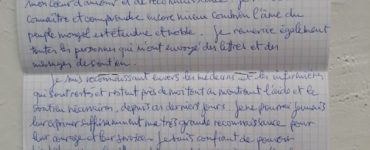 mon cœur d'amour et de reconnaissance. Je
connaître et comprendre encore mieux combien l'âme du
peuple mongol est étendue et noble. Je remercie également
toutes les personnes qui m'ont envoyé des lettres et des
messages de soutien.
Je suis reconnaissant envers les médecins et les infirmières
qui sont restés et restent près de moi tant en montrant l'aide et le
soutien nécessaires, depuis ces derniers jours. Je ne pourrai jamais
leur exprimer suffisamment ma très grande reconnaissance pour
leur courage et leur soutien. Je suis confiant de pouvoir